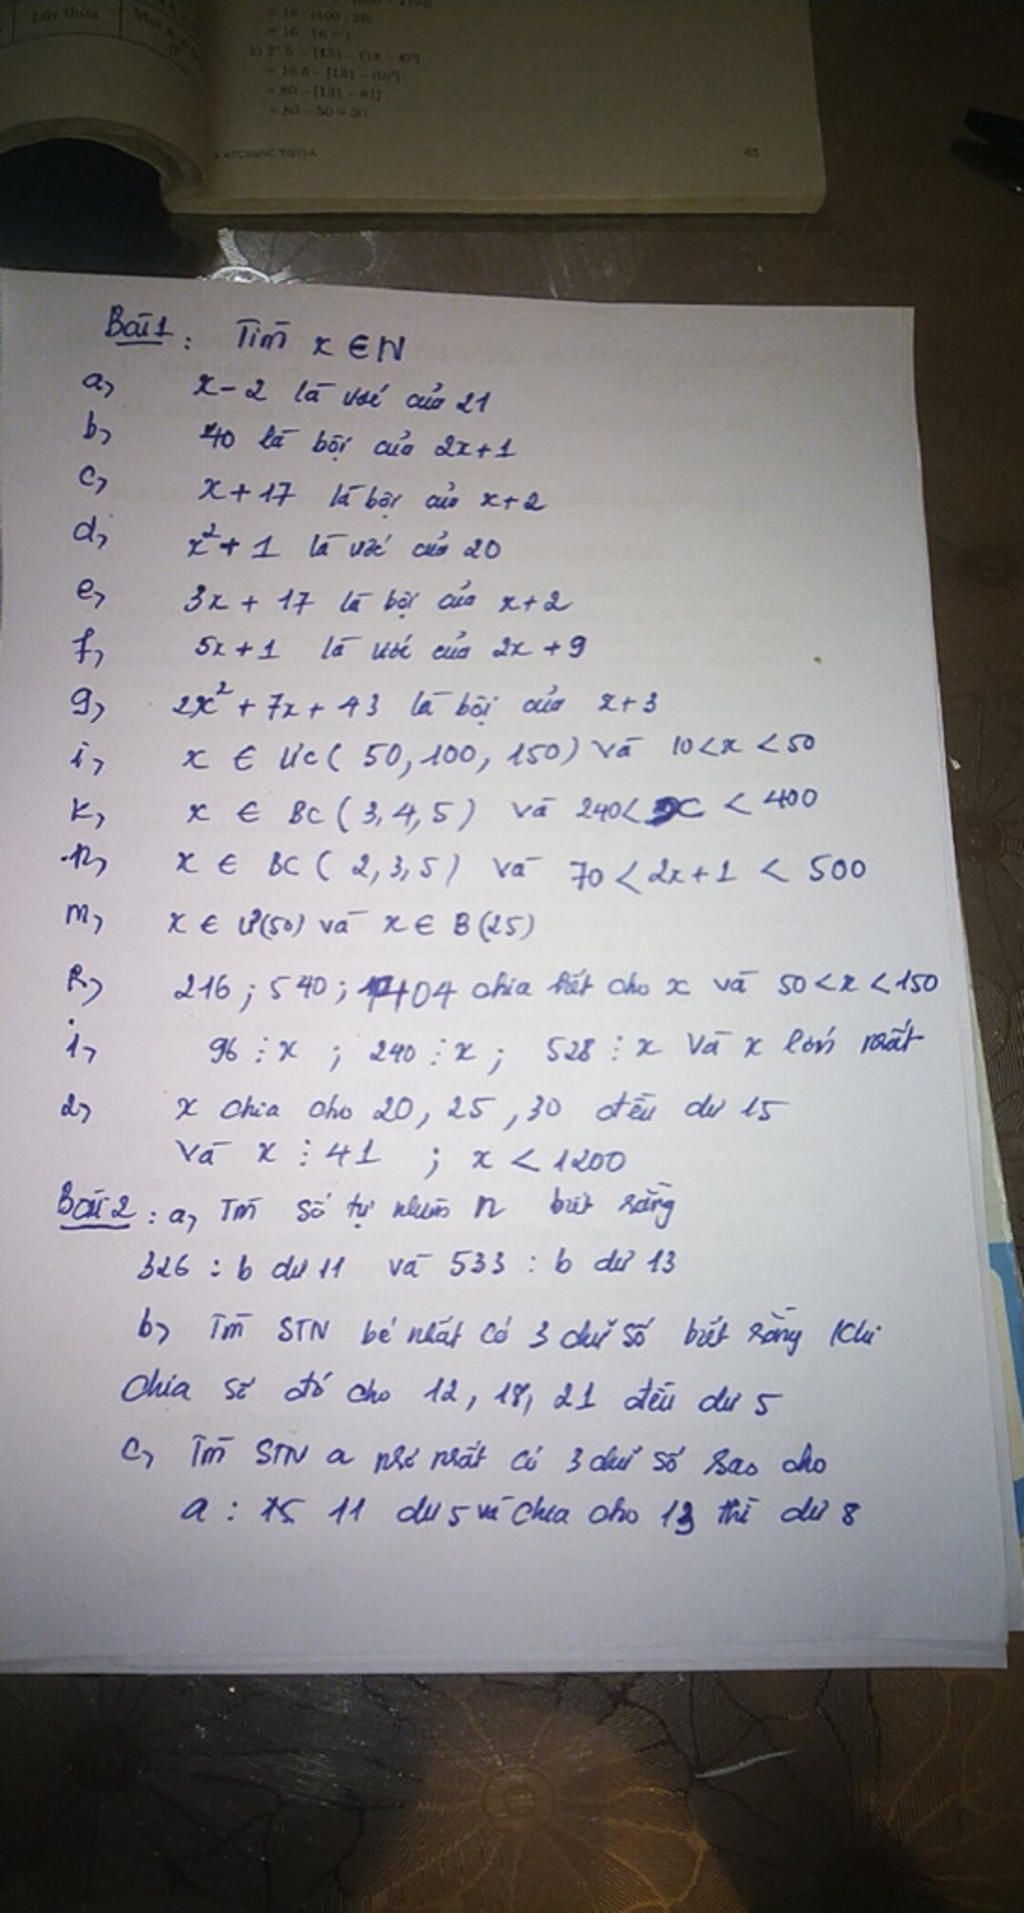 Lấy thừa
= 16 : (400 : 25)
= 16 : 16 = 1
= 80 - [131 - 81]
= 80 - 50 = 30
65
Bài 1 : Tìm x ∈ N
a, x - 2 là ước của 21
b, 40 là bội của 2x + 1
c, x + 17 là bội của x + 2
d, x² + 1 là ước của 20
e, 3x + 17 là bội của x + 2
f, 5x + 1 là ước của 2x + 9
g, 2x² + 7x + 43 là bội của x + 3
i, x ∈ ƯC ( 50, 100, 150 ) và 10 < x < 50
k, x ∈ BC ( 3, 4, 5 ) và 240 < x < 400
x ∈ BC ( 2, 3, 5 ) và 70 < 2x + 1 < 500
m, x ∈ Ư(50) và x ∈ B (25)
216 ; 540 ; 1404 chia hết cho x và 50 < x < 150
i, 96 ⋮ x ; 240 ⋮ x ; 528 ⋮ x và x lớn nhất
x chia cho 20, 25, 30 đều dư 15
và x ⋮ 41 ; x < 1200
Bài 2 : a, Tìm số tự nhiên n biết rằng
326 : b dư 11 và 533 : b dư 13
b, Tìm STN bé nhất có 3 chữ số biết rằng khi
chia số đó cho 12, 18, 21 đều dư 5
c, Tìm STN a nhỏ nhất có 3 chữ số sao cho
a : 11 dư 5 và chia cho 13 thì dư 8